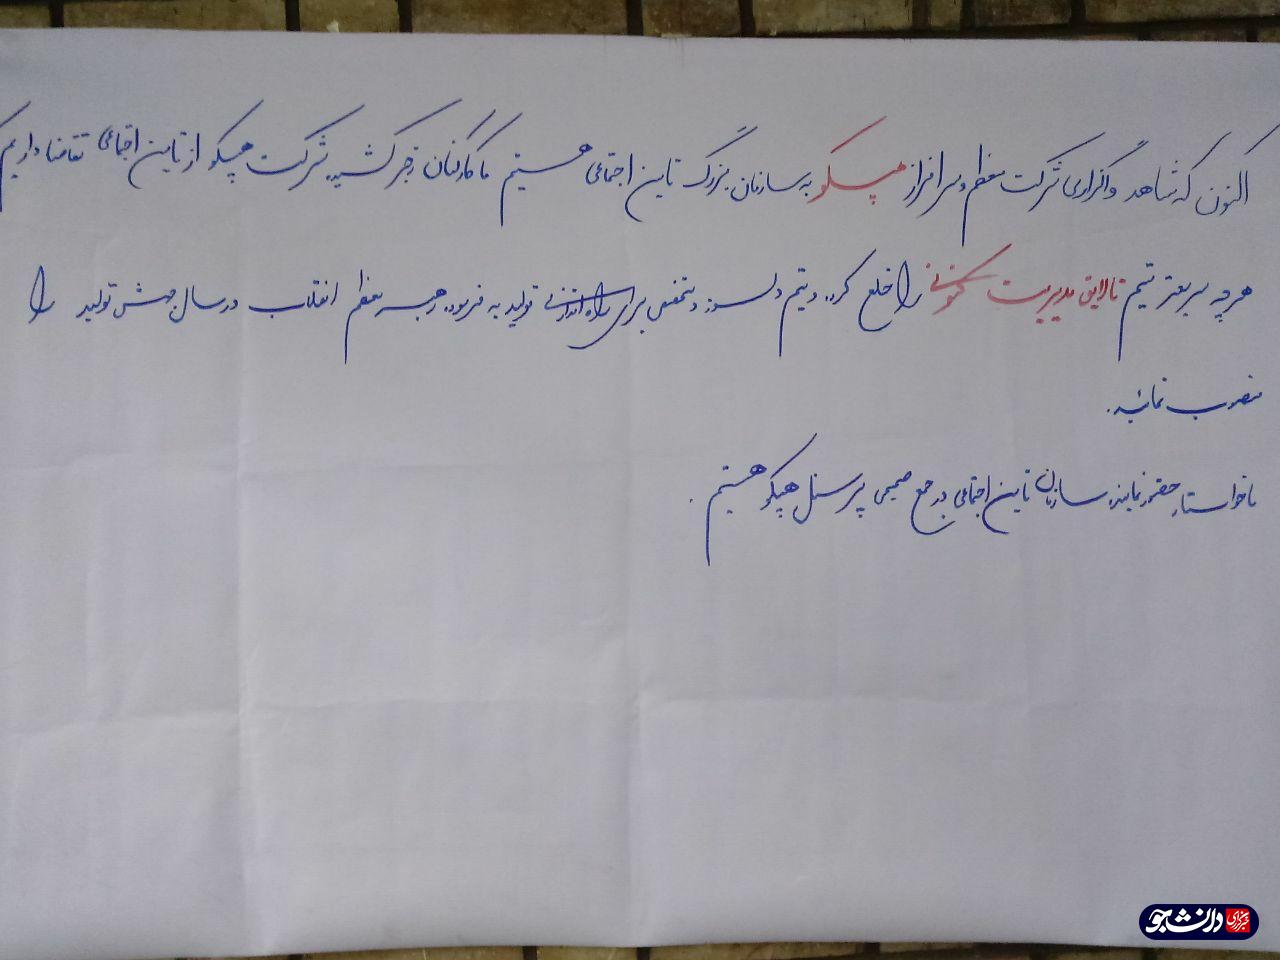 اکنون که شاهد واگذاری شرکت معظم و سرافراز هپکو به سازمان بزرگ تامین اجتماعی هستیم ما کارکنان زجر کشیده شرکت هپکو از تامین اجتماعی تقاضا داریم
هر چه سریعتر تیم نالایق مدیریت کنونی را خلع کرده و تیم دلسوز و متخصص برای راه اندازی تولید به فرموده رهبر معظم انقلاب در سال جهش تولید را
منصوب نمائید.
ما خواستار حضور نماینده سازمان تامین اجتماعی در جمع صمیمی پرسنل هپکو هستیم.
خبرگزاری دانشجو